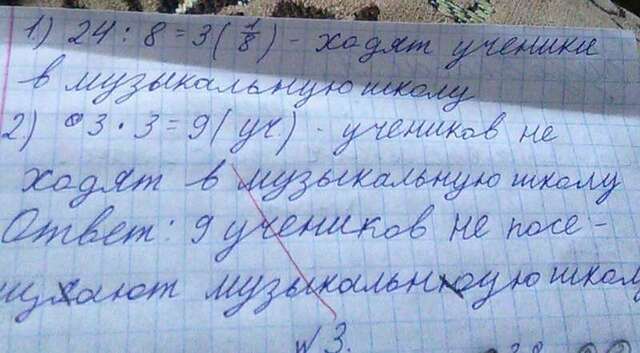 1) 24 : 8 = 3 (1/8) - ходят ученики
в музыкальную школу
2) 3 · 3 = 9 (уч) - учеников не
ходят в музыкальную школу
Ответ: 9 учеников не посе-
щают музыкальную школу
№3.